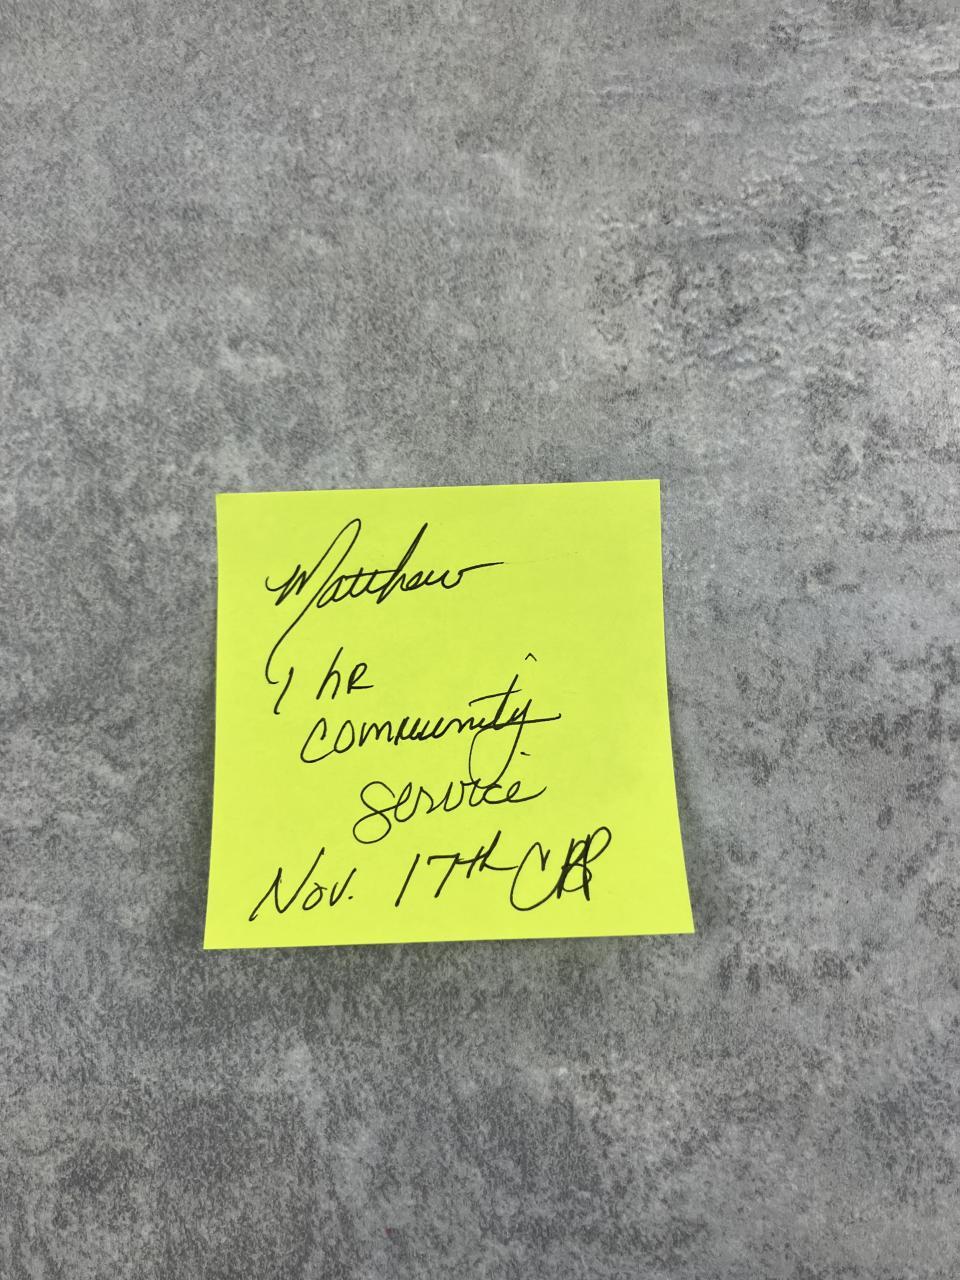 Matthew
1 hR
community
service
Nov. 17th